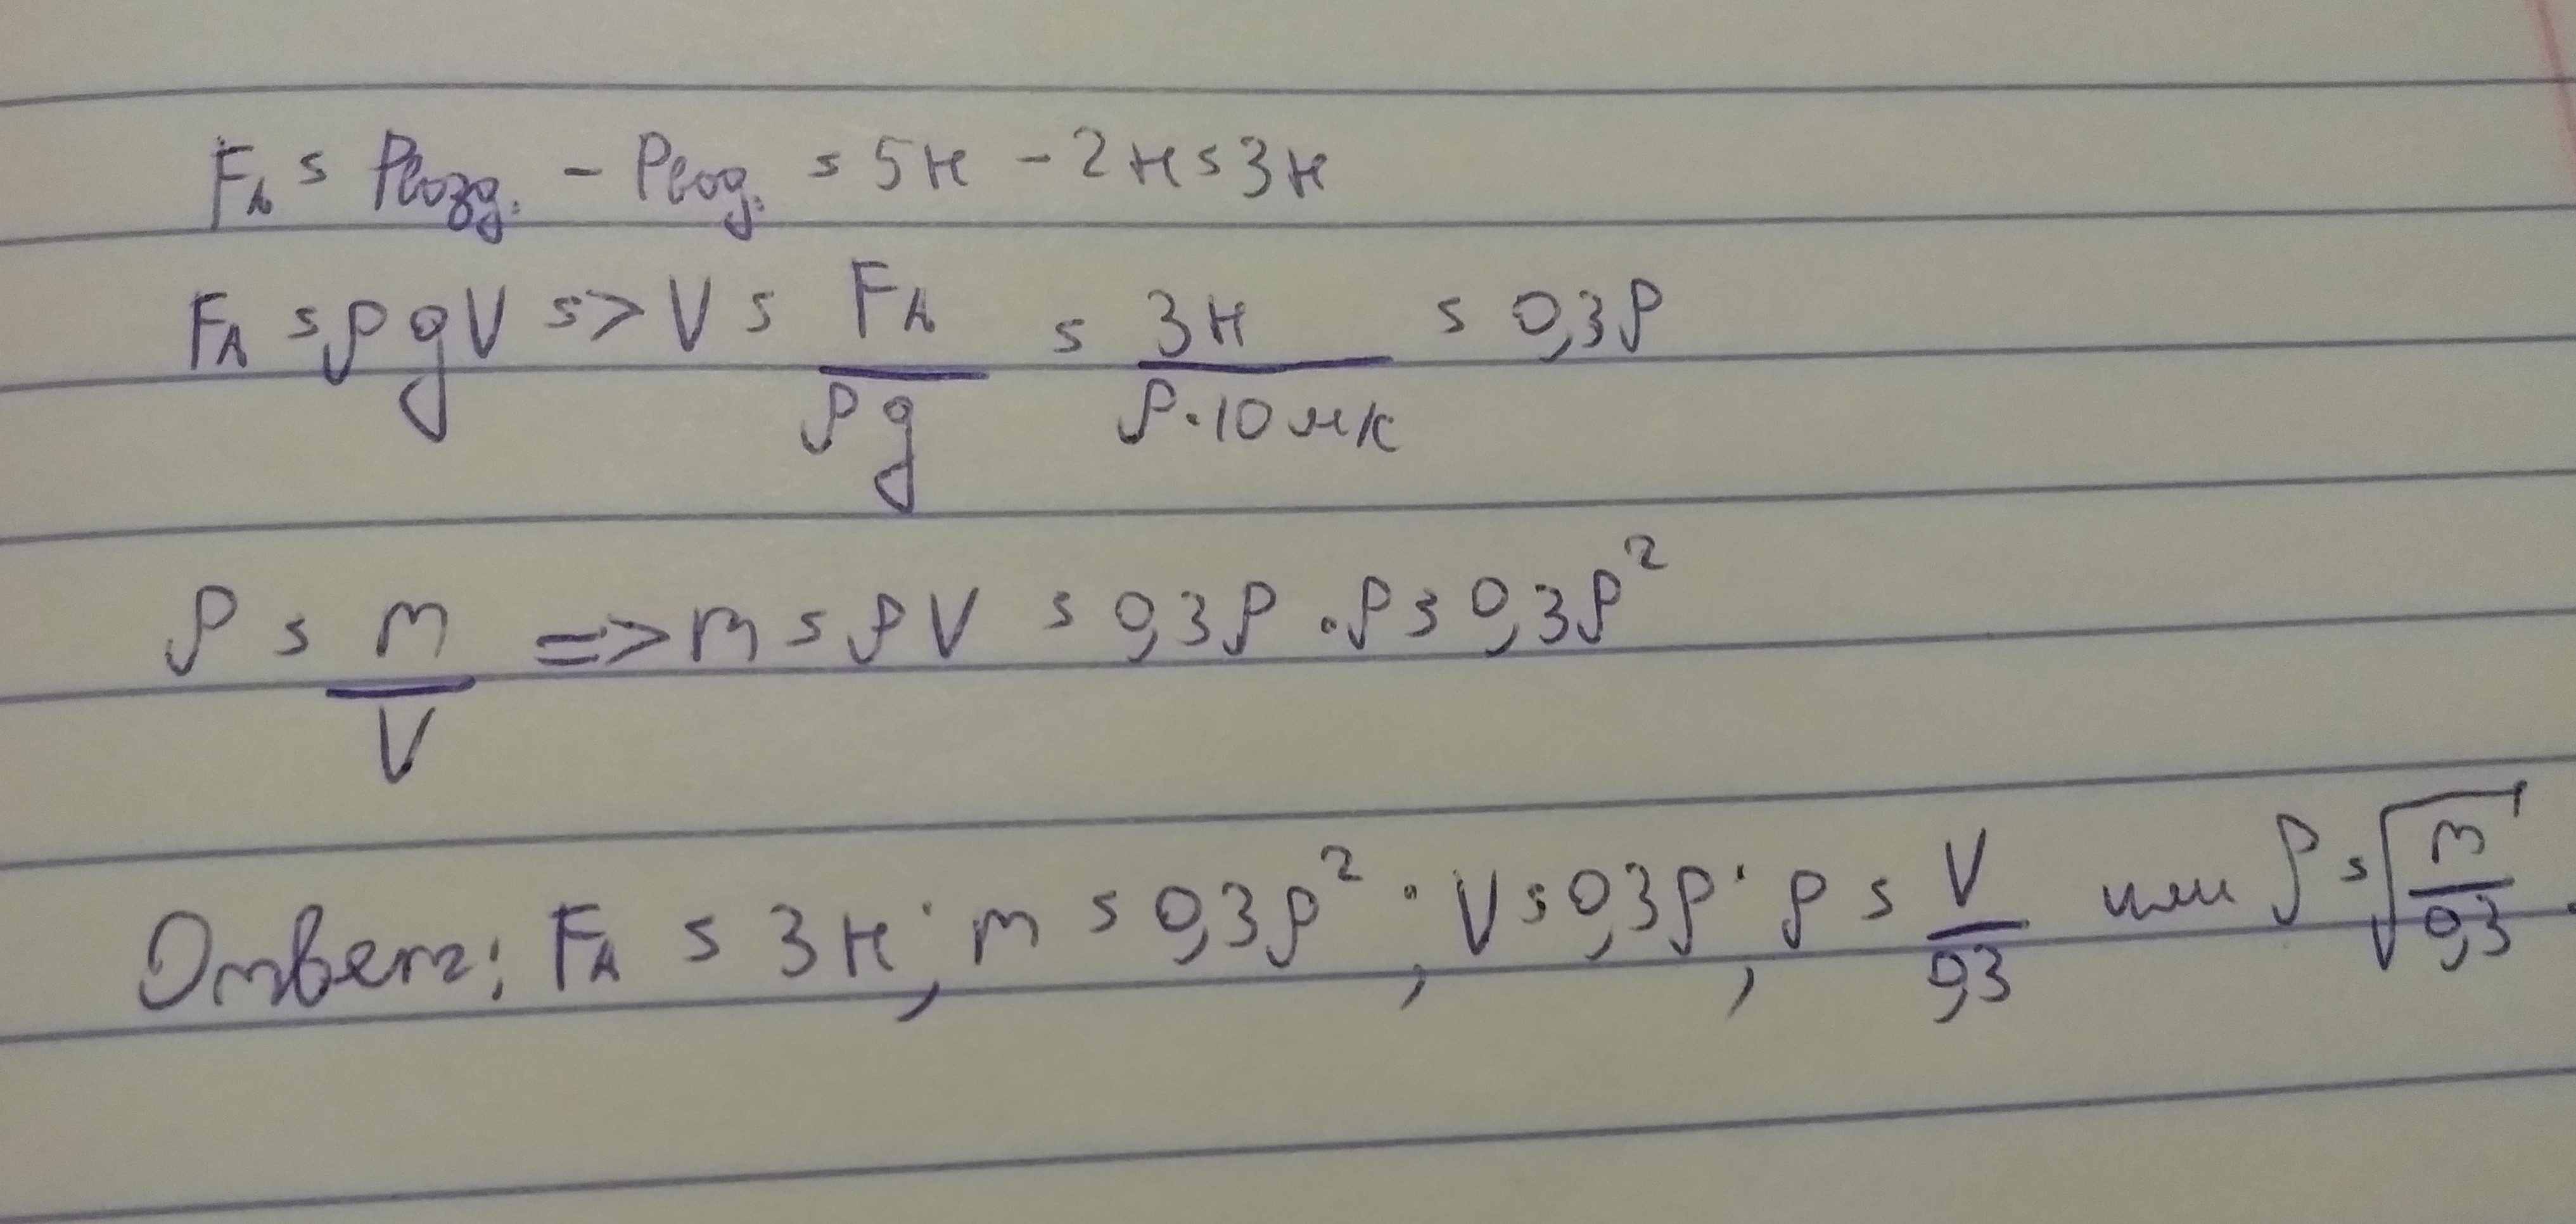 F_A = P_возд. - P_вод. = 5 Н - 2 Н = 3 Н
F_A = ρgV => V = F_A / ρg = 3 Н / ρ·10 = 0,3ρ
ρ = m / V => m = ρV = 0,3ρ · ρ = 0,3ρ²
Ответ: F_A = 3 Н; m = 0,3ρ²; V = 0,3ρ; ρ = V / 0,3 или ρ = √(m / 0,3).